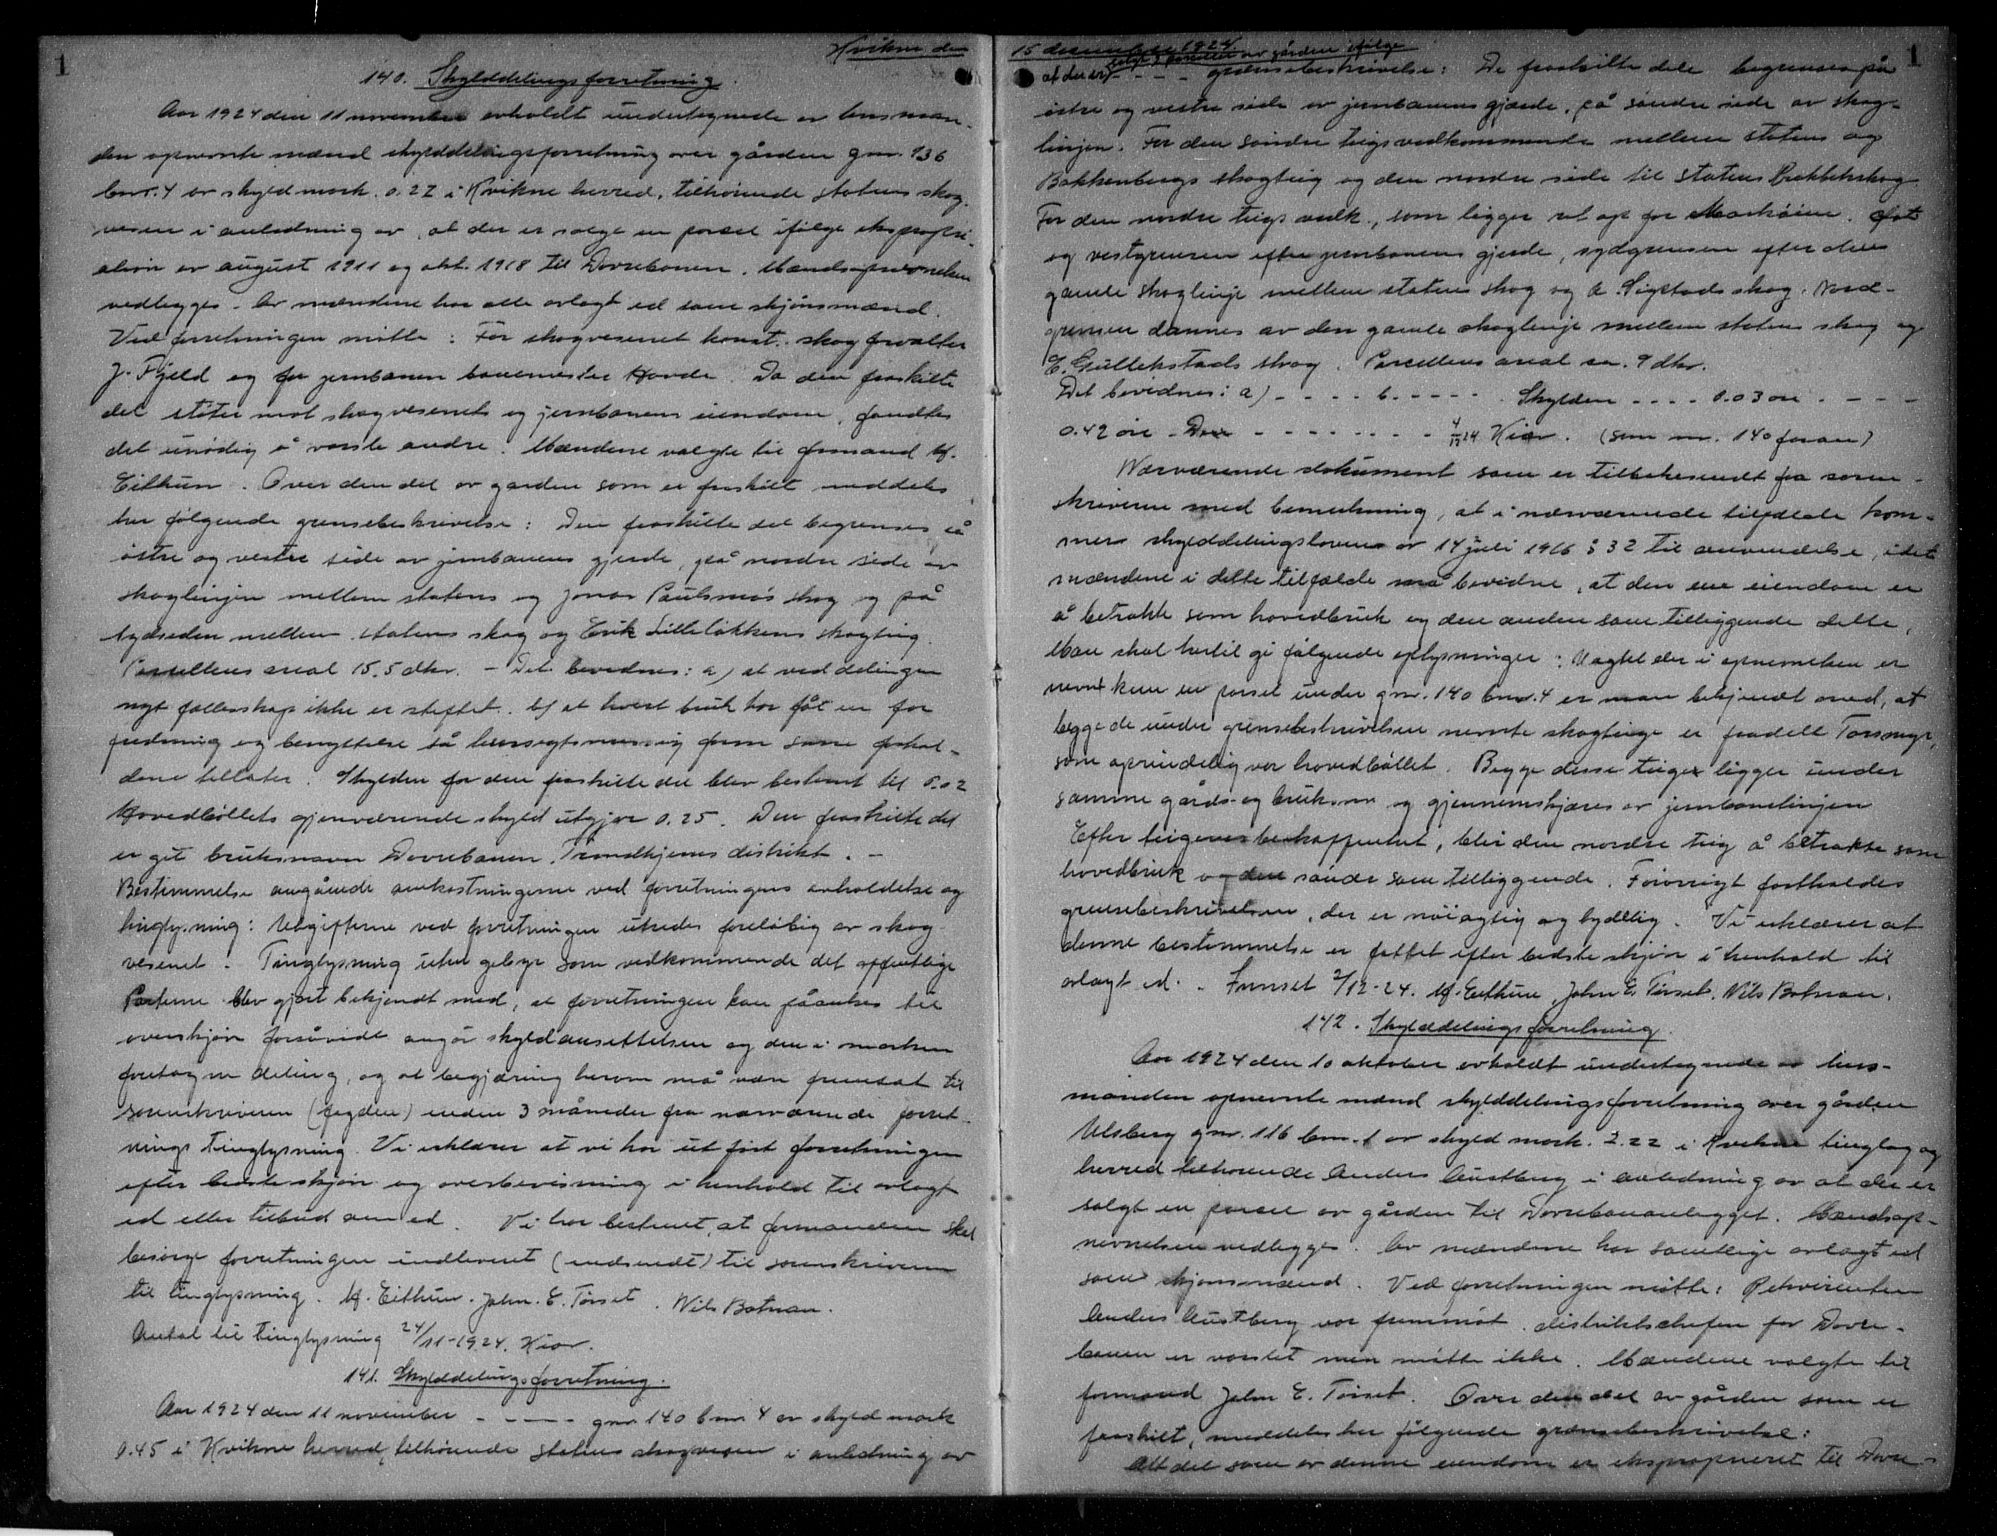 1
Hvikne den
140. Skylddelingsforretning.
Aar 1924 den 11 november avholdt undertegnede av lensman-
den opnevnte mænd skylddelingsforretning over gården gnr. 136
bnr. 4 av skyld mark 0.22 i Kvikne herred, tilhørende statens skog-
vesen i anledning av, at der er solgt en parsel ifølge ekspropri-
ation av august 1911 og okt. 1918 til Dovrebanen. Mandsopnevnelsen
vedlegges. Av mændene har alle avlagt ed som skjønsmænd.
Ved forretningen møtte: For skogvesenet konst. skogforvalter
J. Fjeld og for jernbanen banemester Hovde. Da den fraskilte
del støter mot skogvesenets og jernbanens eiendom, fandtes
det unødig å varsle andre. Mændene valgte til formand M.
Eithun. Over den del av gården som er fraskilt meddeles
her følgende grensebeskrivelse: Den fraskilte del begrenses på
østre og vestre side av jernbanens gjerde, på nordre side av
skoglinjen mellem statens og Jonas Paulsmos skog og på
sydsiden mellem statens skog og Erik Lilleløkkens skogteig.
Parsellens areal 15.5 dkr. - Det bevidnes: a) at ved delingen
nyt fællesskap ikke er stiftet. b) at hvert bruk har fåt en for
fredning og benyttelse så hensigtsmæssig form som forhol-
dene tillater. Skylden for den fraskilte del blev bestemt til 0.02
Hovedbøllets gjenværende skyld utgjør 0.25. Den fraskilte del
er git bruksnavn Dovrebanen, Trondhjems distrikt. -
Bestemmelse angående omkostningerne ved forretningens avholdelse og
tinglysning: Utgifterne ved forretningen utredes foreløbig av skog-
vesenet. Tinglysning uten gebyr som vedkommende det offentlige
Parterne blev gjort bekjendt med, at forretningen kan påankes til
overskjøn forsåvidt angår skyldansettelsen og den i marken
foretagne deling, og at begjæring herom må være fremsat til
sorenskriveren (fogden) inden 3 måneder fra nærværende forret-
nings tinglysning. Vi erklærer at vi har utført forretningen
efter bedste skjøn og overbevisning i henhold til avlagt
ed eller tilbud om ed. Vi har bestemt, at formanden skal
besørge forretningen indleveret (indsendt) til sorenskriveren
til tinglysning. M. Eithun. John. E. Tørset. Nils Botnan.
Antat til tinglysning 24/11-1924. Kiær.
141. Skylddelingsforretning.
Aar 1924 den 11 november - - - - gnr. 140 bnr. 4 av skyld mark
0.45 i Kvikne herred, tilhørende statens skogvesen i anledning av
15 december 1924
1
solgt 2 parseller av gården ifølge
at der er - - - grænsebeskrivelse: De fraskilte dele begrenses på
østre og vestre side av jernbanens gjærde, på søndre side av skog-
linjen. For den søndre teigs vedkommende mellem statens og
Bakkenbergs skogteig og den nordre side til statens
For den nordre teigs vedk., som ligger ret op for . Øst
og vestgrensen efter jernbanens gjerde, sydgrensen efter den
gamle skoglinje mellem statens skog og A. Sigstads skog. Nord-
grensen dannes av den gamle skoglinje mellem statens skog og
E. Gullikstads skog. Parcellens areal ca. 9 dkr.
Det bevidnes: a) - - - - b. - - - - - Skylden - - - - 0.03 øre - - -
0.42 øre - Dovr - - - - - - - 4/12 24 Kiær. (som nr. 140 foran)
Nærværende dokument som er tilbakesendt fra soren-
skriveren med bemerkning, at i nærværende tilfælde kom-
mer skylddelingsloven av 14 juli 1916 § 32 til anvendelse, idet
mændene i dette tilfælde må bevidne, at den ene eiendom er
å betrakte som hovedbruk og den anden som tilliggende dette,
Man skal hertil gi følgende oplysninger: Uagtet der i opnevnelsen er
nevnt kun en parsel under gnr. 140 bnr. 4 er man bekjendt med, at
begge de under grensebeskrivelsen nevnte skogteige er fradelt Torsmyr,
som oprindelig var hovedbøllet. Begge disse teiger ligger under
samme gårds- og bruksnr. og gjennemskjæres av jernbanelinjen
Efter teigenes beskaffenhet, blir den nordre teig å betrakte som
hovedbruk og den søndre som tilliggende. Forøvrigt fastholdes
grensebeskrivelsen, der er nøiagtig og tydelig. Vi erklærer at
denne bestemmelse er fattet efter bedste skjøn i henhold til
avlagt ed. - Innset 2/12-24. M. Eithun, John E. Tørset, Nils Botnan.
142. Skylddelingsforretning.
Aar 1924 den 10 oktober avholdt undertegnede av lens-
manden opnevnte mænd skylddelingsforretning over gården
Ulsberg gnr. 116 bnr. 1 av skyld mark. 2.22 i Kvikne tinglag og
herred tilhørende Anders Austberg i anledning av at der er
solgt en parsel av gården til Dovrebaneanlegget. Mandsop-
nevnelsen vedlegges. Av mændene har samtlige avlagt ed
som skjønsmænd. Ved forretningen møtte: Rekvirenten
Anders Austberg var fremmøt. distriktschefen for Dovre-
banen er varslet men møtte ikke. Mændene valgte til
formand John E. Tørset. Over den del av gården som er
fraskilt, meddeles her følgende grænsebeskrivelse:
Alt det som av denne eiendom er ekspropriert til Dovre-